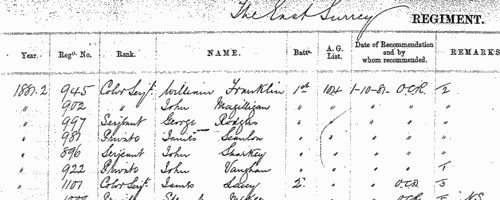 The East Surrey REGIMENT.
Year. Regtl. No. Rank. NAME. Batn. A. G. List. Date of Recommendation and by whom recommended. REMARKS
1881-2 945 Color Serjt. William Franklin 1st 104 1-10-81 O.C.R. 2
" 902 " John Magilligan " " " " "
" 997 Serjeant George Rodgers " " " " "
" 987 Private James Scanlon " " " "
" 896 Serjeant John Sharkey " " " "
" 922 Private John Vaughan " " " " 1
" 1101 Color Serjt. James Lacey 2. " " O.C.R. 3